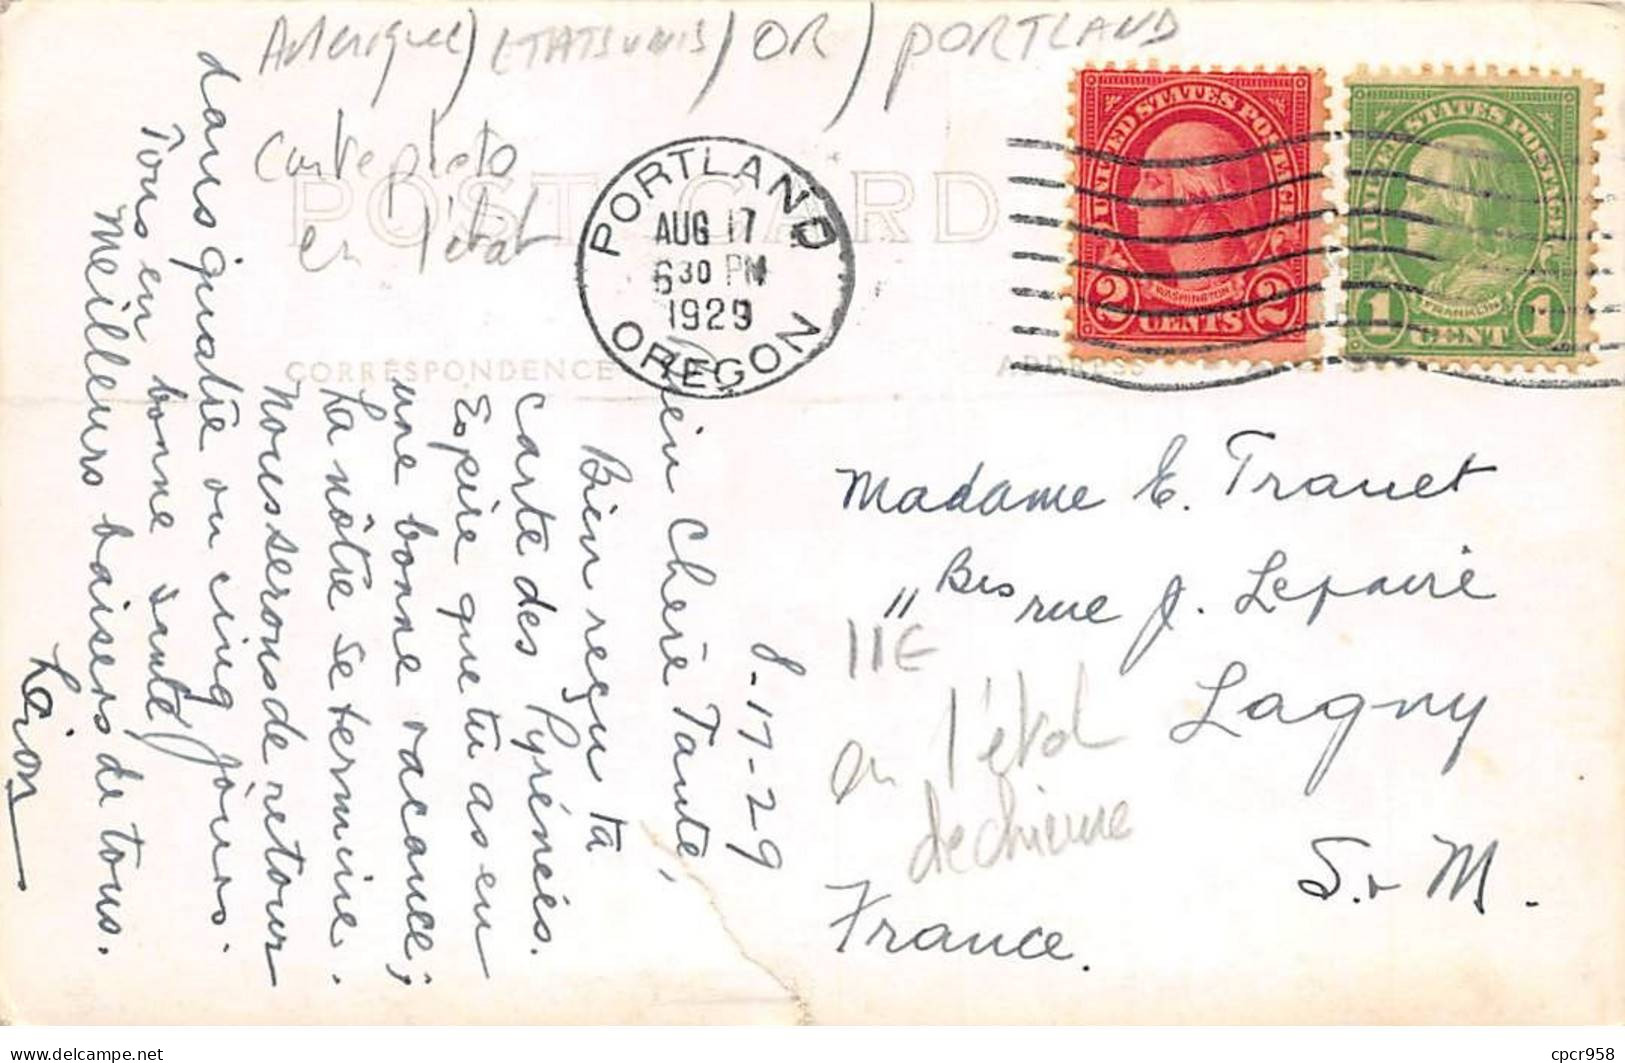 Amerique) ETATS UNIS) OR) PORTLAND
Carte photo
en l'état
POST CARD
PORTLAND
AUG 17
6 30 PM
1929
OREGON
UNITED STATES POSTAGE
WASHINGTON
2 CENTS 2
UNITED STATES POSTAGE
FRANKLIN
1 CENT 1
CORRESPONDENCE
ADDRESS
8-17-29
Bien Chère Tante,
Bien reçu ta
carte des Pyrénées.
Espère que tu as eu
une bonne vacance;
La nôtre se termine.
Nous serons de retour
dans quatre ou cinq jours.
Tous en bonne santé
Meilleurs baisers de tous.
Léon
Madame E. Tranet
11 Bis rue J. Lepaire
Lagny
S. & M.
France.
11€
en l'état
déchirure
delcampe.net
cpcr958